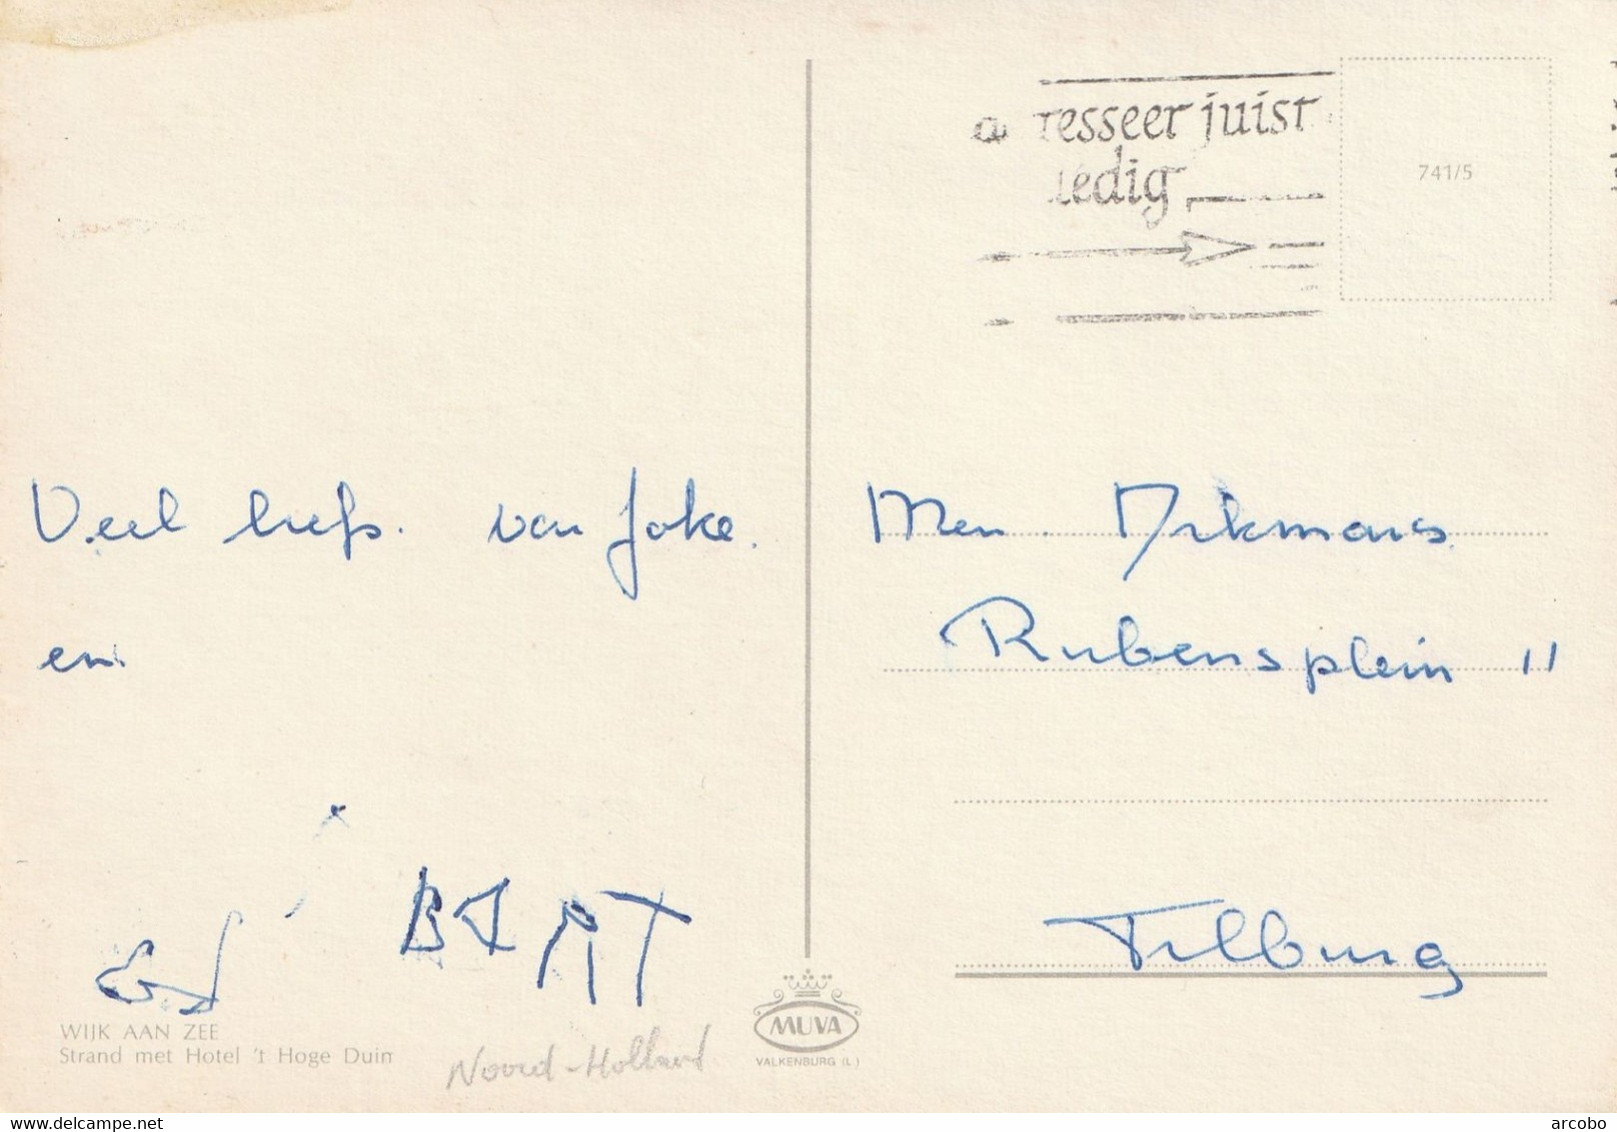 resseer juist
ledig
741/5
Veel liefs. van Joke.
en
BART
WIJK AAN ZEE
Strand met Hotel 't Hoge Duin
Noord-Holland
MUVA
VALKENBURG (L)
Rubensplein 11
Tilburg
www.delcampe.net
arcobo